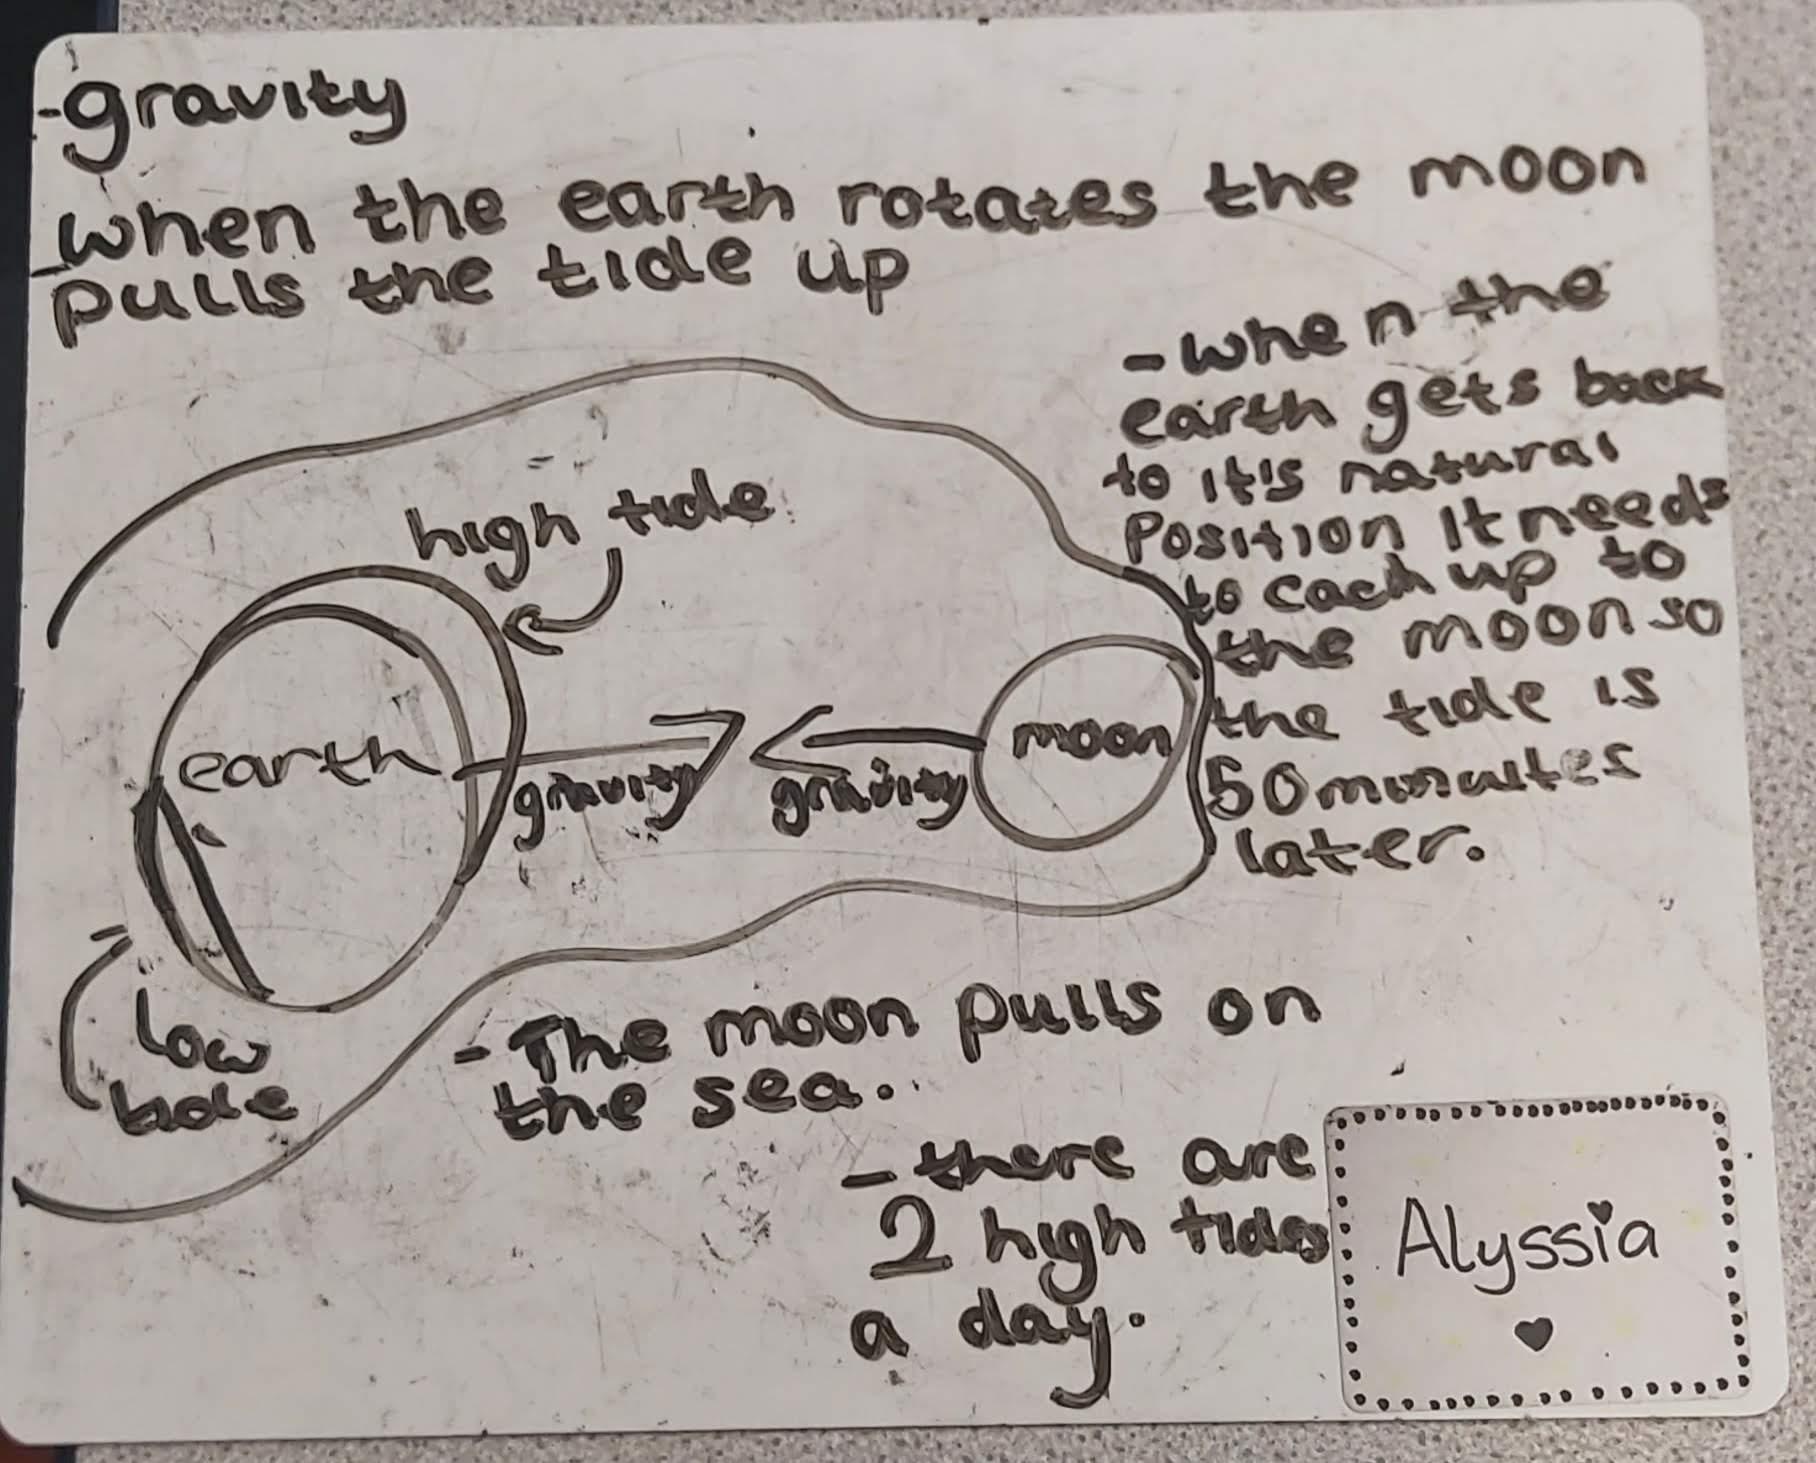 -gravity
-when the earth rotates the moon
pulls the tide up
-when the
earth gets back
to it's natural
position it needs
to cach up to
the moon so
the tide is
50 minutes
later.
high tide
earth
gravity
gravity
moon
low
tide
-The moon pulls on
the sea.
-there are
2 high tides
a day.
Alyssia